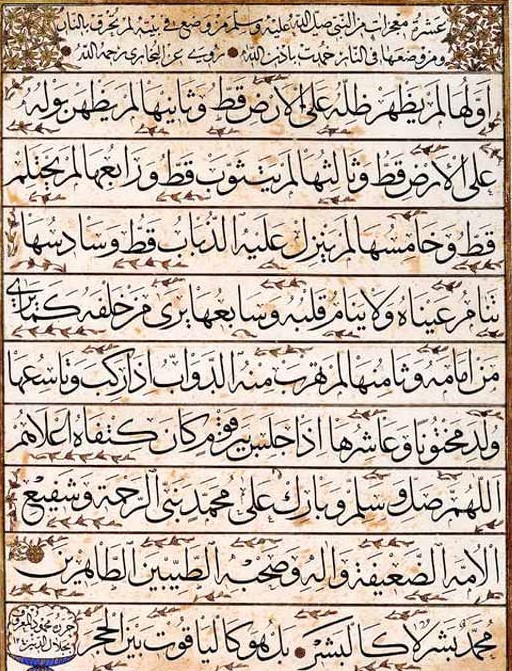 عشرة معجزات من النبي صلى الله عليه وسلم من وضع في بيته لم يحرق بالنار
ومن وضعها في النار خمدت باذن الله ● روي عن البخاري رحمة الله
اولها لم يظهر ظله على الارض قط وثانيها لم يظهر بوله
على الارض قط وثالثها لم يبت ثوب قط ورابعها لم يحتلم
قط وخامسها لم ينزل عليه الذباب قط وسادسها
تنام عيناه ولا ينام قلبه وسابعها يرى من خلفه كما يرى
من امامه وثامنها لم تهرب منه الدواب اذا ركب وتاسعها
ولد مختونا وعاشرها اذا جلس بين قوم كان كتفاه اعلا منهم
اللهم صل وسلم وبارك على محمد نبي الرحمة وشفيع
الامة الضعيفة وآله وصحبه الطيبين الطاهرين
محمد بشر لا كالبشر ● بل هو كالياقوت بين الحجر